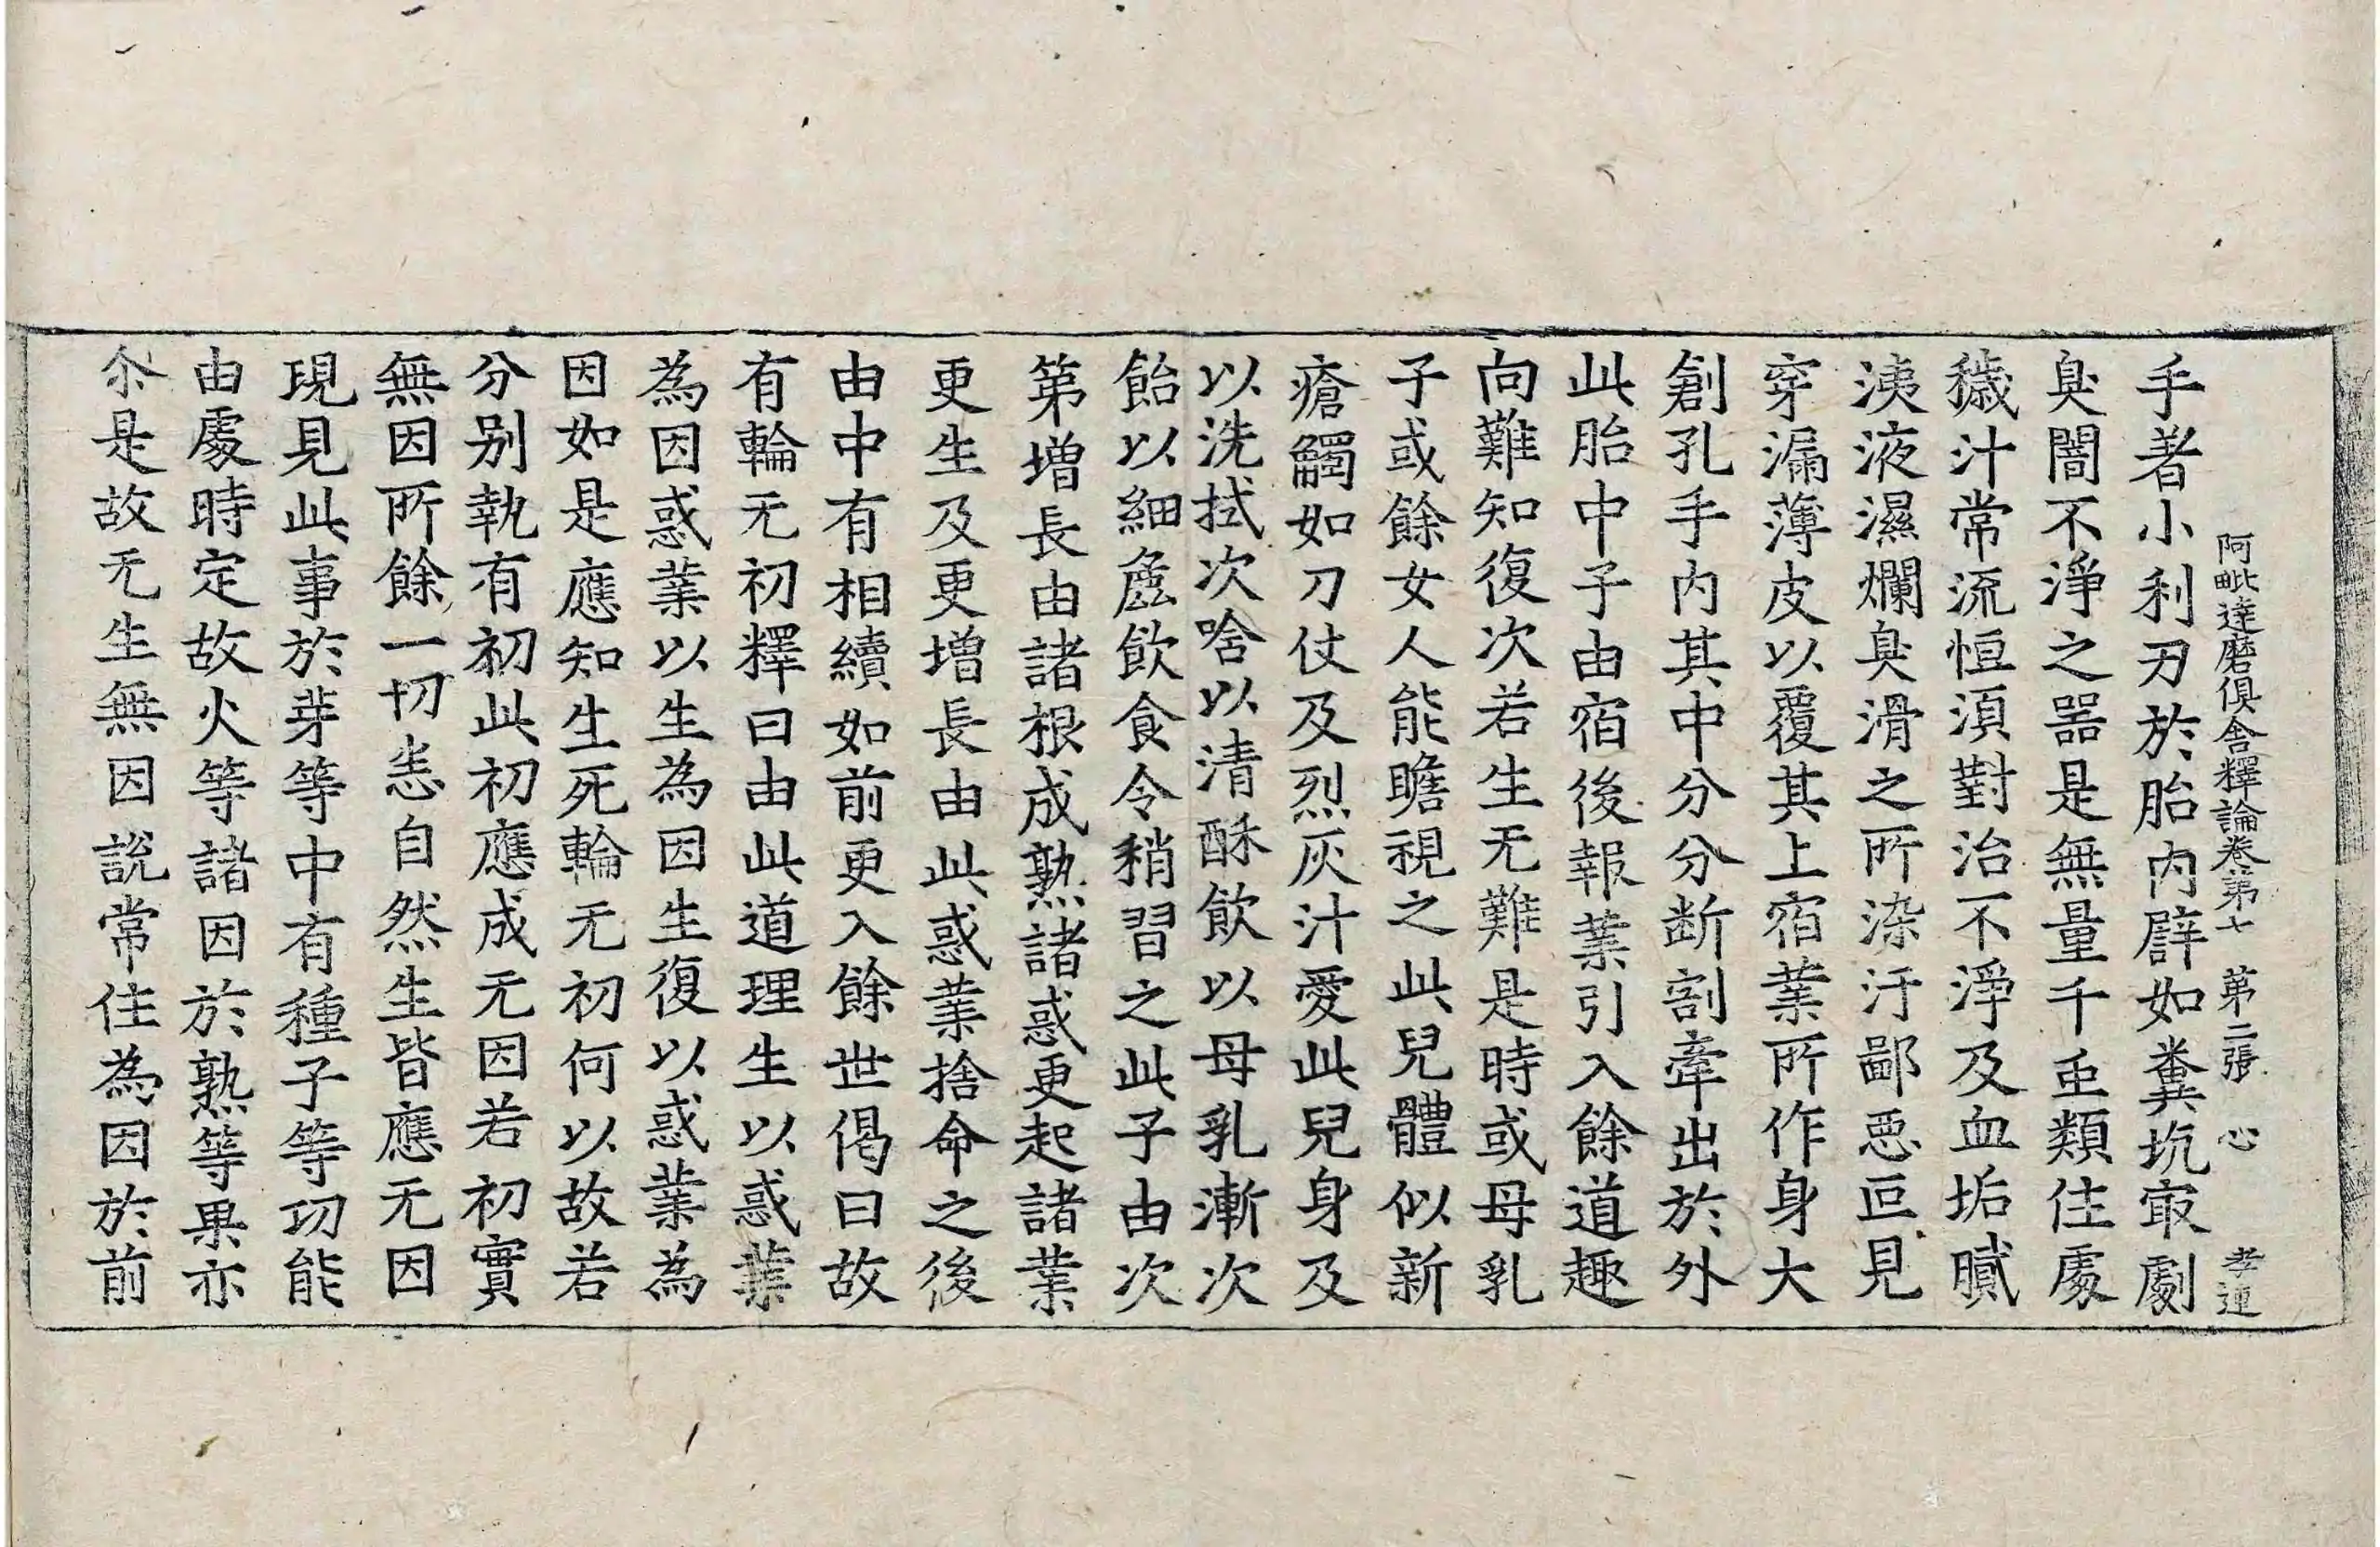 阿毗達磨俱舍釋論卷第七 第二張 心 孝連
手著小利刃於胎內辟如糞坑㝡劇
臭闇不淨之器是無量千虫類住處
穢汁常流恒湏對治不淨及血垢膩
洟液濕爛臭滑之所染汙鄙惡叵見
穿漏薄皮以覆其上宿業所作身大
創孔手內其中分分断割牽出於外
此胎中子由宿後報業引入餘道趣
向難知復次若生无難是時或母乳
子或餘女人能瞻視之此兒體似新
瘡觸如刀仗及烈灰汁愛此兒身及
以洗拭次唅以清酥飲以母乳漸次
飴以細麁飲食令稍習之此子由次
第增長由諸根成熟諸惑更起諸業
更生及更增長由此惑業捨命之後
由中有相續如前更入餘世偈曰故
有輪无初釋曰由此道理生以惑業
為因惑業以生為因生復以惑業為
因如是應知生死輪无初何以故若
分別執有初此初應成无因若初實
無因所餘一切悉自然生皆應无因
現見此事於芽等中有種子等功能
由處時定故火等諸因於熟等果亦
尒是故无生無因說常住為因於前